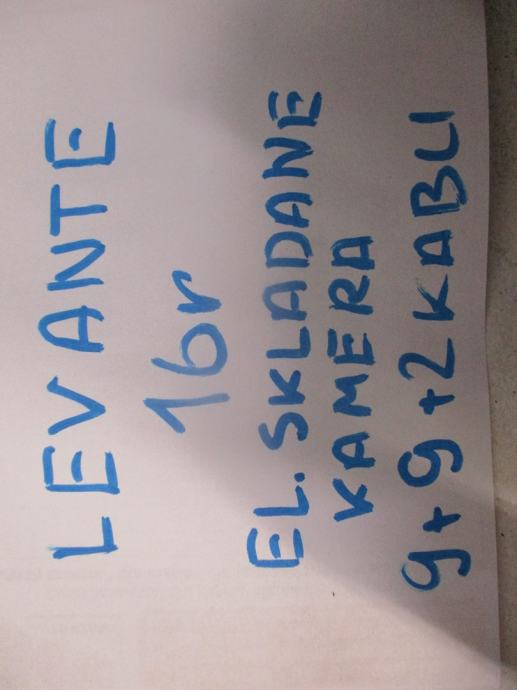 LEVANTE
16r
EL. SKLADANE
KAMERA
9+9+2 KABLI